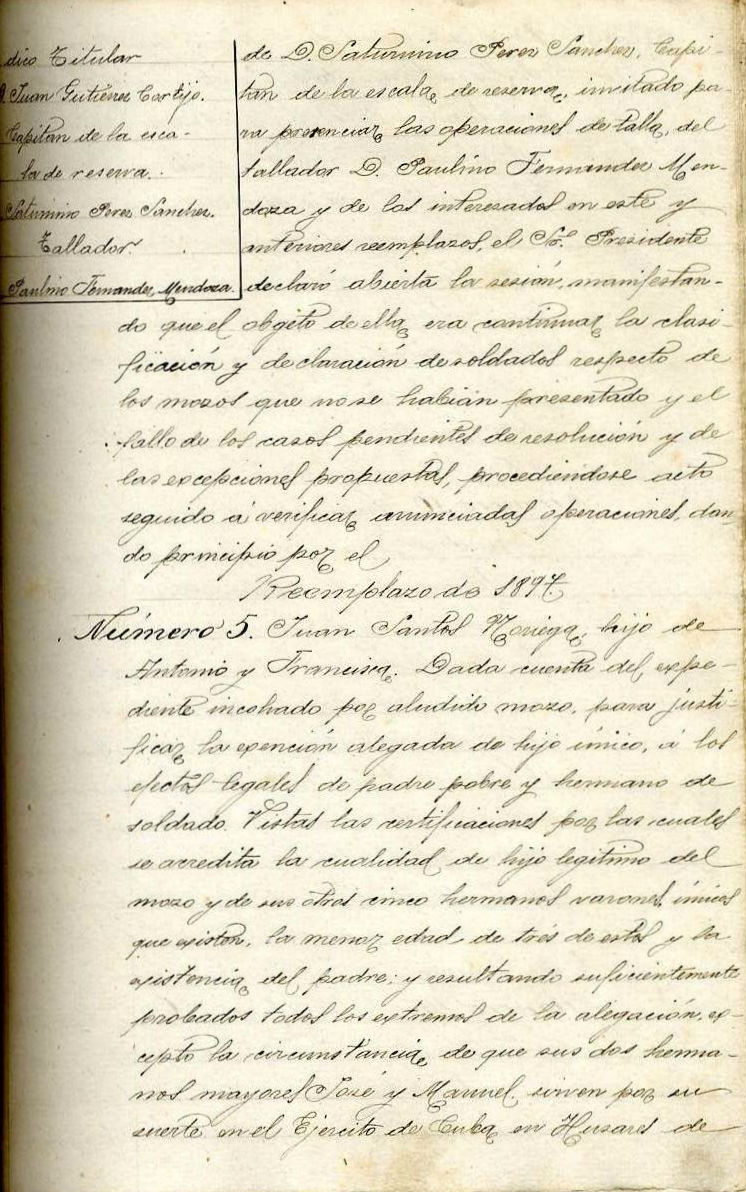 dico Titular
D. Juan Gutierrez Cortijo.
Capitan de la esca-
la de reserva.
Saturnino Perez Sanchez.
Tallador.
Paulino Fernandez Mendoza.
de D. Saturnino Perez Sanchez, Capi-
tán de la escala de reserva, invitado pa-
ra presenciar las operaciones de talla, del
tallador D. Paulino Fernandez Men-
doza y de los interesados en este y
anteriores reemplazos, el Sr. Presidente
declaró abierta la sesión, manifestan-
do que el objeto de ella era continuar la clasi-
ficación y declaración de soldados respecto de
los mozos que no se habían presentado y el
fallo de los casos pendientes de resolución y de
las excepciones propuestas, procediéndose acto
seguido á verificar anunciadas operaciones, dan
do principio por el
Reemplazo de 1897.
Número 5. Juan Santos Noriega, hijo de
Antonio y Francisca. Dada cuenta del expe-
diente incohado por aludido mozo, para justi-
ficar la exención alegada de hijo único, á los
efectos legales de padre pobre y hermano de
soldado. Vistas las certificaciones por las cuales
se acredita la cualidad de hijo legitimo del
mozo y de sus otros cinco hermanos varones, únicos
que existen, la menor edad de trés de estos y la
existencia del padre; y resultando suficientemente
probados todos los extremos de la alegación, ex-
cepto la circunstancia de que sus dos herma-
nos mayores José y Manuel, sirven por su
suerte en el Ejército de Cuba en Husares de